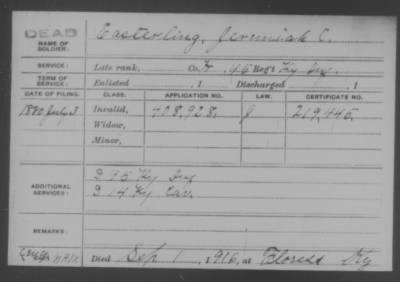 DEAD
NAME OF SOLDIER: Easterling, Jeremiah C.
SERVICE: Late rank, Co. H, 45 Reg't Ky Inf.
TERM OF SERVICE: Enlisted , 1 Discharged , 1
DATE OF FILING. CLASS. APPLICATION NO. LAW. CERTIFICATE NO.
1880 July 3 Invalid, 408,928. 219,445.
Widow,
Minor,
ADDITIONAL SERVICES: D 45 Ky Inf
D 14 Ky Cav.
REMARKS:
Died Sep 1, 1916, at Floress Ky